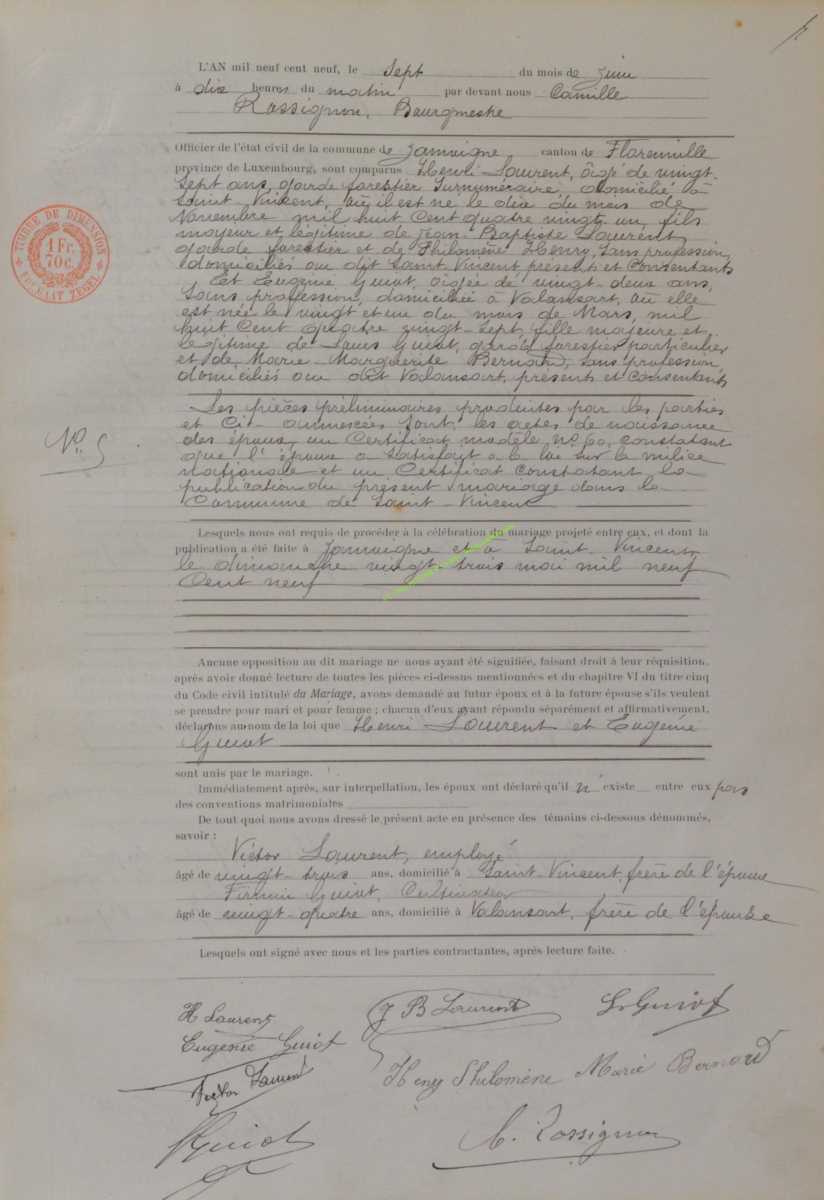 L'AN mil neuf cent neuf, le sept du mois de juin
à dix heures du matin par devant nous Camille
Rossignon, Bourgmestre
Officier de l'état civil de la commune de Jamoigne canton de Florenville
province de Luxembourg, sont comparus Henri Laurent, âgé de vingt-
sept ans, garde forestier surnuméraire, domicilié à
Saint Vincent, où il est né le dix du mois de
Novembre mil huit cent quatre vingt un, fils
majeur et légitime de Jean-Baptiste Laurent,
garde forestier et de Philomène Henry, sans profession
domiciliés au dit Saint Vincent présents et consentants
Et Eugénie Guiot, âgée de vingt-deux ans,
sans profession, domiciliée à Valansart, où elle
est née le vingt et un du mois de Mars, mil
huit cent quatre vingt-sept, fille majeure et
légitime de Louis Guiot, garde forestier particulier
et de Marie-Marguerite Bernard, sans profession,
domiciliés au dit Valansart, présents et consentants
TIMBRE DE DIMENSION
1 Fr.
70 c.
FORMAAT ZEGEL
No 5
Les pièces préliminaires produites par les parties
et ci-annexées sont: les actes de naissance
des époux, un certificat modèle no 60, constatant
que l'époux a satisfait à la loi sur la milice
nationale et un certificat constatant la
publication du présent mariage dans la
Commune de Saint-Vincent
Lesquels nous ont requis de procéder à la célébration du mariage projeté entre eux, et dont la
publication a été faite à Jamoigne et à Saint-Vincent
le dimanche vingt-trois mai mil neuf
cent neuf
Aucune opposition au dit mariage ne nous ayant été signifiée, faisant droit à leur réquisition,
après avoir donné lecture de toutes les pièces ci-dessus mentionnées et du chapitre VI du titre cinq
du Code civil intitulé du Mariage, avons demandé au futur époux et à la future épouse s'ils veulent
se prendre pour mari et pour femme ; chacun d'eux ayant répondu séparément et affirmativement,
déclarons au nom de la loi que Henri Laurent et Eugénie
Guiot
sont unis par le mariage.
Immédiatement après, sur interpellation, les époux ont déclaré qu'il n'existe entre eux pas
des conventions matrimoniales
De tout quoi nous avons dressé le présent acte en présence des témoins ci-dessous dénommés,
savoir :
Victor Laurent, employé
âgé de vingt-trois ans, domicilié à Saint-Vincent, frère de l'époux
Firmin Guiot, Cultivateur
âgé de vingt-quatre ans, domicilié à Valansart, frère de l'épouse
Lesquels ont signé avec nous et les parties contractantes, après lecture faite.
H Laurent J B Laurent L Guiot
Eugénie Guiot
Victor Laurent Henry Philomène Marie Bernard
F Guiot C. Rossignon